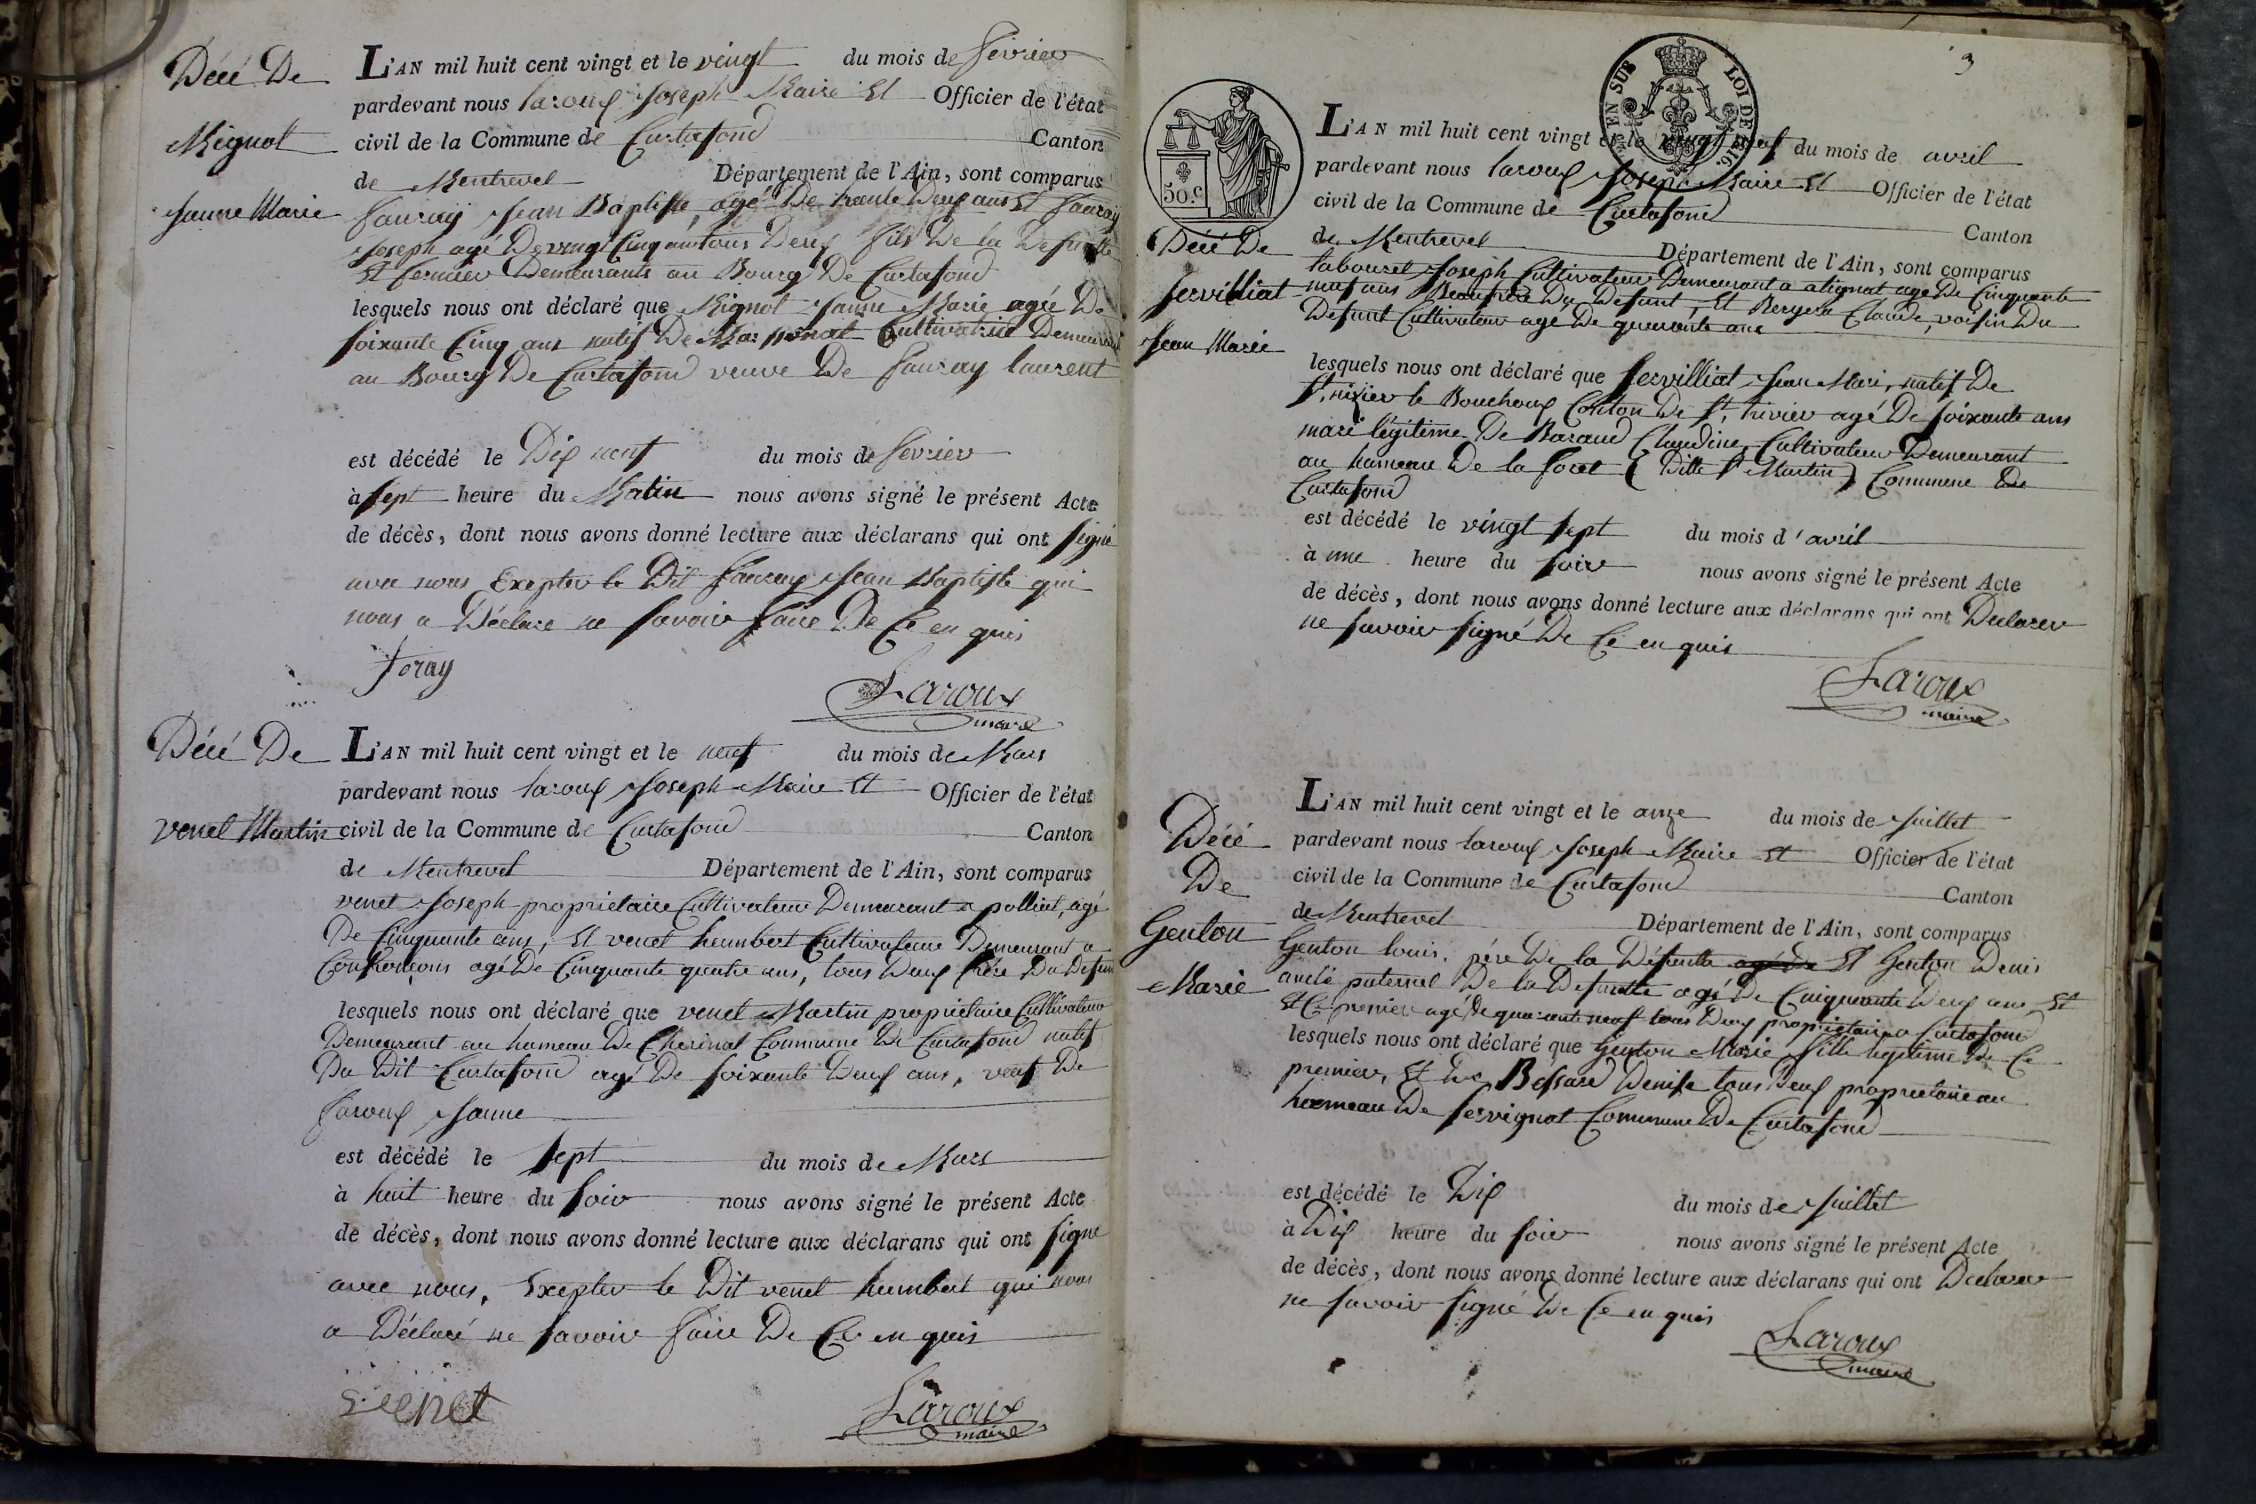 Décé De
Mignot
Jeanne Marie
L'AN mil huit cent vingt et le vingt du mois de fevrier
pardevant nous Laroux Joseph Maire Et Officier de l'état
civil de la Commune de Curtafond Canton
de Montrevel Département de l'Ain, sont comparus
Jean Baptiste, agé De trente Deux ans Et
Joseph agé De vingt Cinq ans tous Deux fils De la Defunte
Et fermier Demeurants au Bourg De Curtafond
lesquels nous ont déclaré que Mignot Jeanne Marie agée De
soixante Cinq ans natif De Marsonnat Cultivatrice Demeurant
au Bourg De Curtafond veuve De fauray laurent
est décédé le Dix neuf du mois de fevrier
à sept heure du Matin nous avons signé le présent Acte
de décès, dont nous avons donné lecture aux déclarans qui ont signé
avec nous Exepter le Dit fauray Jean Baptiste qui
nous a Déclare ne savoir faire De Ce en quis
foray
Laroux
maire
Décé De
venet Martin
L'AN mil huit cent vingt et le neuf du mois de Mars
pardevant nous laroux Joseph Maire Et Officier de l'état
civil de la Commune de Curtafond Canton
de Montrevel Département de l'Ain, sont comparus
venet Joseph propriétaire Cultivateur Demeurant a polliat, agé
De Cinquante ans, Et venet humbert Cultivateur Demeurant a
Confrançons agé De Cinquante quatre ans, tous Deux frère Du Defun
lesquels nous ont déclaré que venet Martin propriétaire Cultivateur
Demeurant au hameau De Cherinal Commune De Curtafond natif
Du Dit Curtafond agé De soixante Deux ans, veuf De
laroux Jeanne
est décédé le sept du mois de Mars
à huit heure du soir nous avons signé le présent Acte
de décès, dont nous avons donné lecture aux déclarans qui ont signé
avec nous, Exepter le Dit venet humbert qui nous
a Déclaré ne savoir faire De Ce en quis
venet
Laroux
maire
3
EN SUS LOI DE 1816.
50.c
Décé De
Servilliat
Jean Marie
L'AN mil huit cent vingt et le vingt neuf du mois de avril
pardevant nous laroux Joseph Maire Et Officier de l'état
civil de la Commune de Curtafond Canton
de Montrevel Département de l'Ain, sont comparus
labouret Joseph Cultivateur Demeurant a atignat agé De Cinquante
neuf ans Beaufrère Du Defunt, Et Bergera Claude, voisin Du
Defunt Cultivateur agé De quarante ans
lesquels nous ont déclaré que servilliat Jean Marie, natif De
St. nizier le Bouchoux Canton De St. trivier agé De soixante ans
mari légitime De Baraud Claudine, Cultivateur Demeurant
au hameau De la foret (Ditte St Martin) Commune De
Curtafond
est décédé le vingt sept du mois d'avril
à une heure du soir nous avons signé le présent Acte
de décès, dont nous avons donné lecture aux déclarans qui ont Declarer
ne savoir signé De Ce en quis
Laroux
maire
Décé
De
Genton
Marie
L'AN mil huit cent vingt et le onze du mois de Juillet
pardevant nous laroux Joseph Maire Et Officier de l'état
civil de la Commune de Curtafond Canton
de Montrevel Département de l'Ain, sont comparus
Genton louis, père De la Défunte agé De Et Genton Denis
oncle paternel De la Defuntte agé De Cinquante Deux ans, Et
Et Ce premier agé De quarante neuf tous Deux propriétaire a Curtafond
lesquels nous ont déclaré que Genton Marie fille legitime De Ce
premier, Et De Bessard Denise tous Deux propriétaire au
hameau De servignat Commune De Curtafond
est décédé le Dix du mois de Juillet
à Dix heure du soir nous avons signé le présent Acte
de décès, dont nous avons donné lecture aux déclarans qui ont Declarer
ne savoir signé De Ce en quis
Laroux
maire